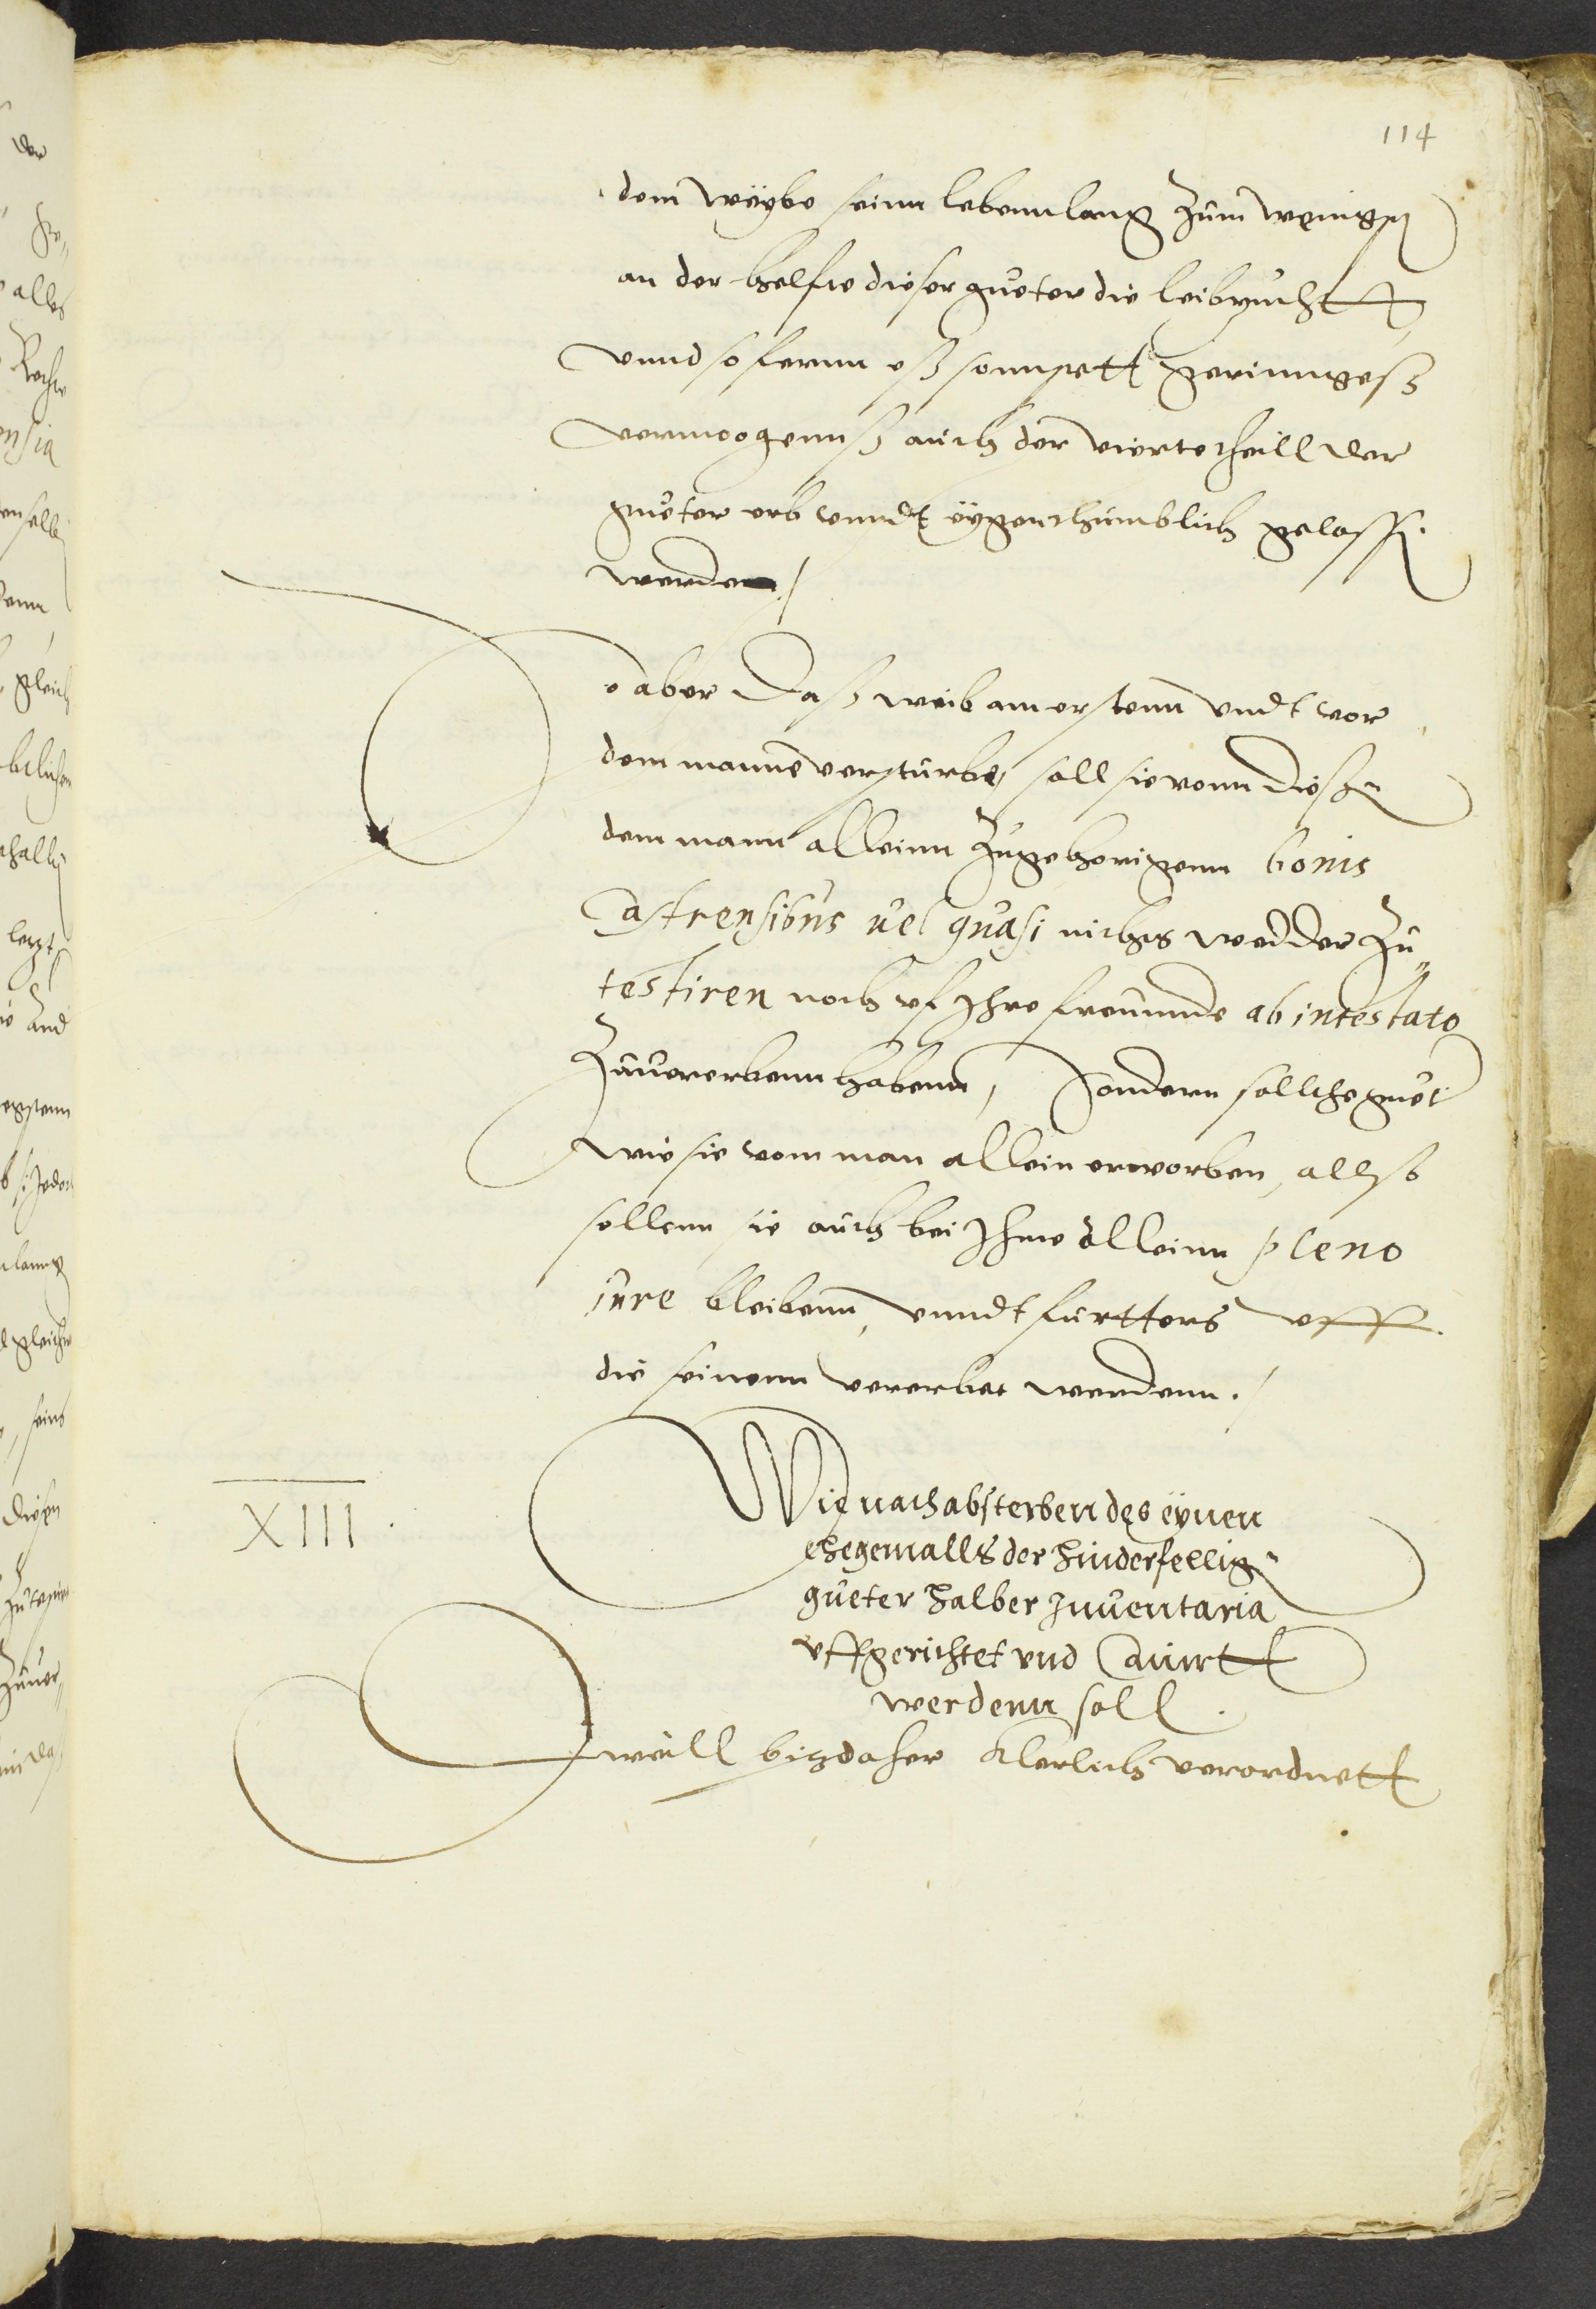 114
dem weÿbe seinn lebennlang zum wenigsten
an der helfte dieser gueter die leibzuchtt
vnnd so fernn eß sonnsett geringeß
vermoogennß auch der vierte theill der
gueter erb vnndt eÿgenthumblich gelassen
werden /
So aber Daß weib am erstenn vndt vor
dem manne versturbe, soll sie vonn dießen
dem mann alleinn zugehorigenn bonis
Castrensibus uel quasi nichts wedder zu
testiren noch vf Ihre freunnde ab intestato
zuuererbenn habenn, Sondern solliche guet
wie sie vom man allein erworben, allso
sollenn sie auch bei Ihme alleinn pleno
iure bleibenn, vnndt furtters vff
die seinenn vererbet werdenn. /
XIII.
Wie nach absterben des eÿnen
ehegemalls der hinderfellig
gueter halber Inuentaria
vffgerichtet vnd Cauirtt
werdenn soll.
Diweill bißdaher klerlich verordnett